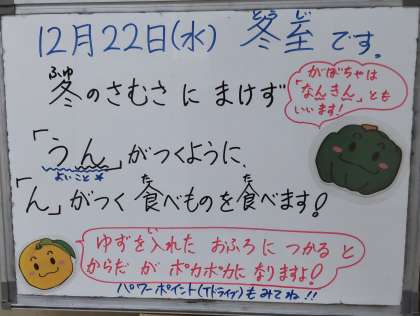 12月22日(水) 冬至です。
とうじ
かぼちゃは
「なんきん」とも
いいます!
ふゆ
冬のさむさに まけず
「うん」がつくように、
よいこと
た た
「ん」がつく 食べものを食べます!
い
ゆずを入れた おふろに つかると
からだ が ポカポカに なりますよ!
パワーポイント(Tドライブ)もみてね!!